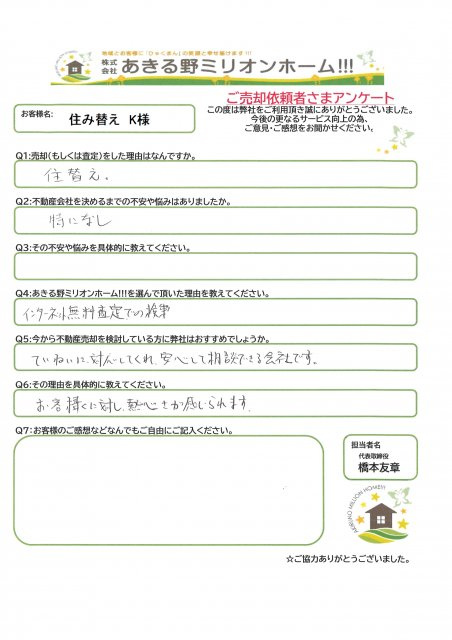 地域とお客様に「ひゃくまん」の笑顔と幸せ届けます!!!
株式会社 あきる野ミリオンホーム!!!
ご売却依頼者さまアンケート
お客様名: 住み替え K様
この度は弊社をご利用頂き誠にありがとうございました。
今後の更なるサービス向上の為、
ご意見・ご感想をお聞かせください。
Q1:売却(もしくは査定)をした理由はなんですか。
住替え.
Q2:不動産会社を決めるまでの不安や悩みはありましたか。
特になし
Q3:その不安や悩みを具体的に教えてください。
Q4:あきる野ミリオンホーム!!!を選んで頂いた理由を教えてください。
インターネット無料査定での検索
Q5:今から不動産売却を検討している方に弊社はおすすめでしょうか。
ていねいに対応してくれ、安心して相談できる会社です。
Q6:その理由を具体的に教えてください。
お客様に対し、熱心さが感じられます.
Q7:お客様のご感想などなんでもご自由にご記入ください。
担当者名
代表取締役
橋本友章
AKIRUNO MILLION HOME!!!
☆ご協力ありがとうございました。